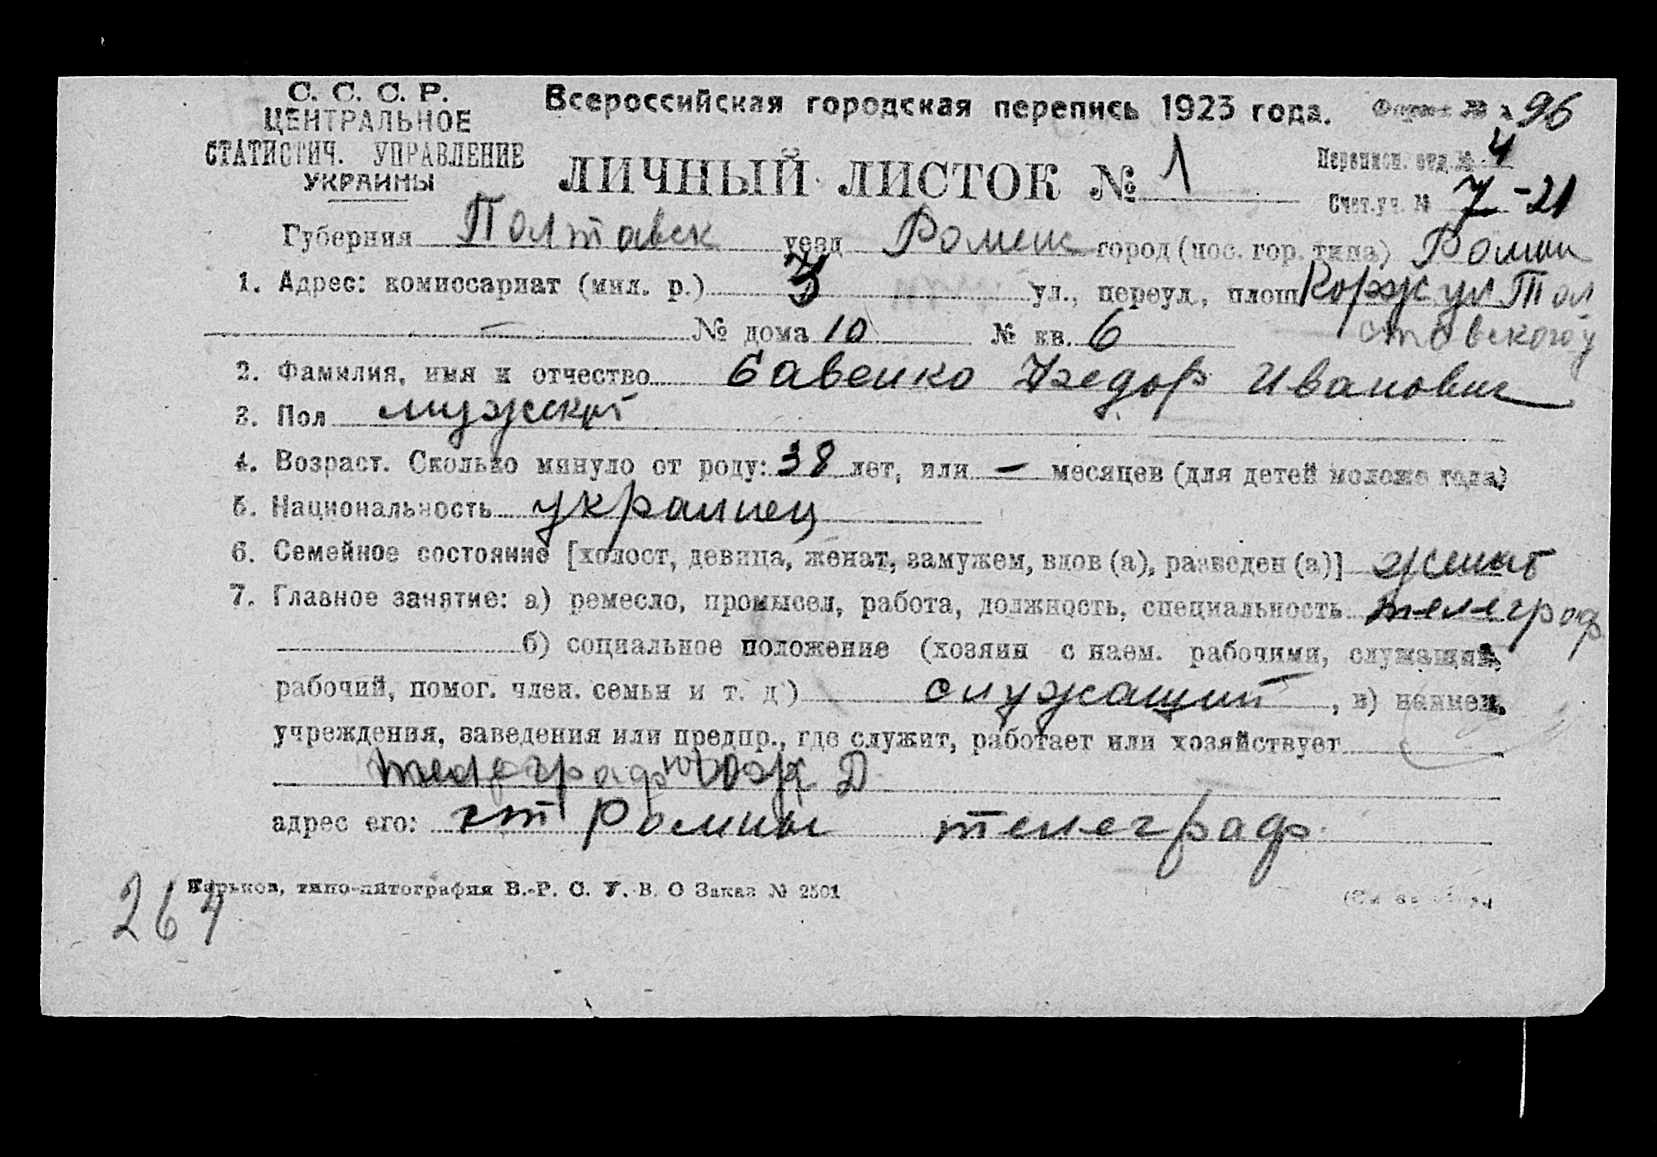 С. С. С. Р.
ЦЕНТРАЛЬНОЕ
СТАТИСТИЧ. УПРАВЛЕНИЕ
УКРАИНЫ
Всероссийская городская перепись 1923 года.
96
ЛИЧНЫЙ ЛИСТОК № 1
Переписн. отд. № 4
Счет. уч. № 7-21
Губерния Полтавск уезд Роменс город (пос. гор. типа) Ромны
1. Адрес: комиссариат (мил. р.) 3 ул., переул., площ Корж ул Тол
№ дома 10 № кв. 6
2. Фамилия, имя и отчество Савенко Федор Иванович
3. Пол мужской
4. Возраст. Сколько минуло от роду: 38 лет, или — месяцев (для детей моложе года)
5. Национальность украинец
6. Семейное состояние [холост, девица, женат, замужем, вдов (а), разведен (а)] женат
7. Главное занятие: а) ремесло, промысел, работа, должность, специальность телеграф
б) социальное положение (хозяин с наем. рабочими, служащий,
рабочий, помог. член. семьи и т. д.) служащий, в) наимен.
учреждения, заведения или предпр., где служит, работает или хозяйствует
телеграф Д
адрес его: ст Ромны телеграф
Харьков, типо-литография В.-Р. С. У. В. О Заказ № 2501
264